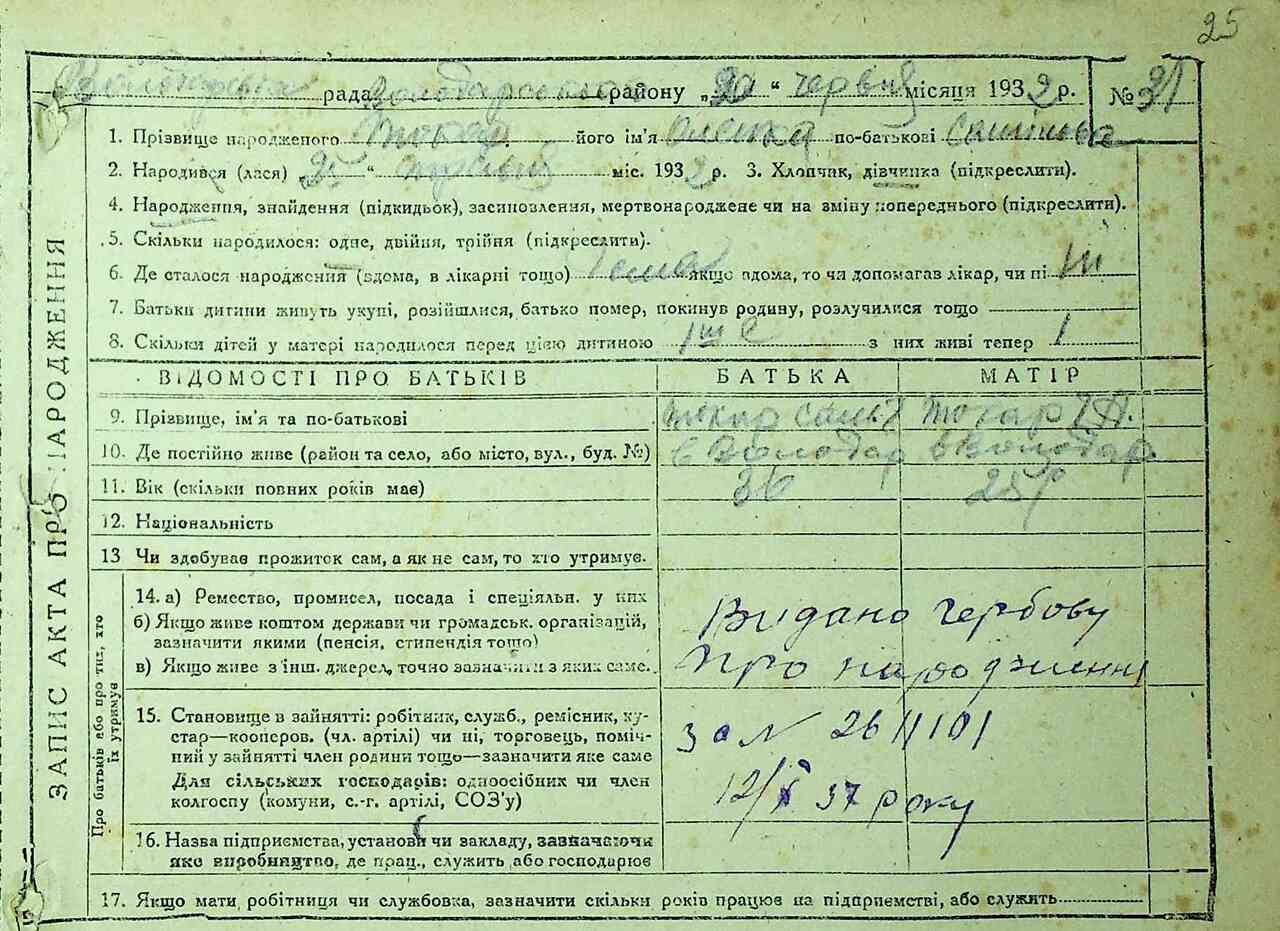 25
рада Володарського району „20“ червня місяця 1932 р. № 31
1. Прізвище народженого Токар його ім'я Олена по-батькові
2. Народився (лася) „ “ міс. 1932 р. 3. Хлопчик, дівчинка (підкреслити).
4. Народження, знайдення (підкидьок), засиновлення, мертвонароджене чи на зміну попереднього (підкреслити).
5. Скільки народилося: одне, двійня, трійня (підкреслити).
6. Де сталося народження (вдома, в лікарні тощо) якщо вдома, то чи допомагав лікар, чи ні ні
7. Батьки дитини живуть укупі, розійшлися, батько помер, покинув родину, розлучилися тощо
8. Скільки дітей у матері народилося перед цією дитиною з них живі тепер 1
ЗАПИС АКТА ПРО НАРОДЖЕННЯ
ВІДОМОСТІ ПРО БАТЬКІВ БАТЬКА МАТІР
9. Прізвище, ім'я та по-батькові Токар Токар
10. Де постійно живе (район та село, або місто, вул., буд. №) в Володар в Володар
11. Вік (скільки повних років має) 36 25 р
12. Національність
13 Чи здобував прожиток сам, а як не сам, то хто утримує.
Про батьків або про тих, хто їх утримує
14. а) Ремество, промисел, посада і спеціяльн. у них
б) Якщо живе коштом держави чи громадськ. організацій,
зазначити якими (пенсія, стипендія тощо)
в) Якщо живе з інш. джерел, точно зазначити з яких саме.
Видано гербову
про народження
15. Становище в зайнятті: робітник, служб., ремісник, ку-
стар—кооперов. (чл. артілі) чи ні, торговець, поміч-
ний у зайнятті член родини тощо—зазначити яке саме
Для сільських господарів: одноосібних чи член
колгоспу (комуни, с.-г. артілі, СОЗ'у)
за № 26
37 року
16. Назва підприємства, установи чи закладу, зазначаючи
яке виробництво, де прац., служить або господарює
17. Якщо мати робітниця чи службовка, зазначити скільки років працює на підприємстві, або служить